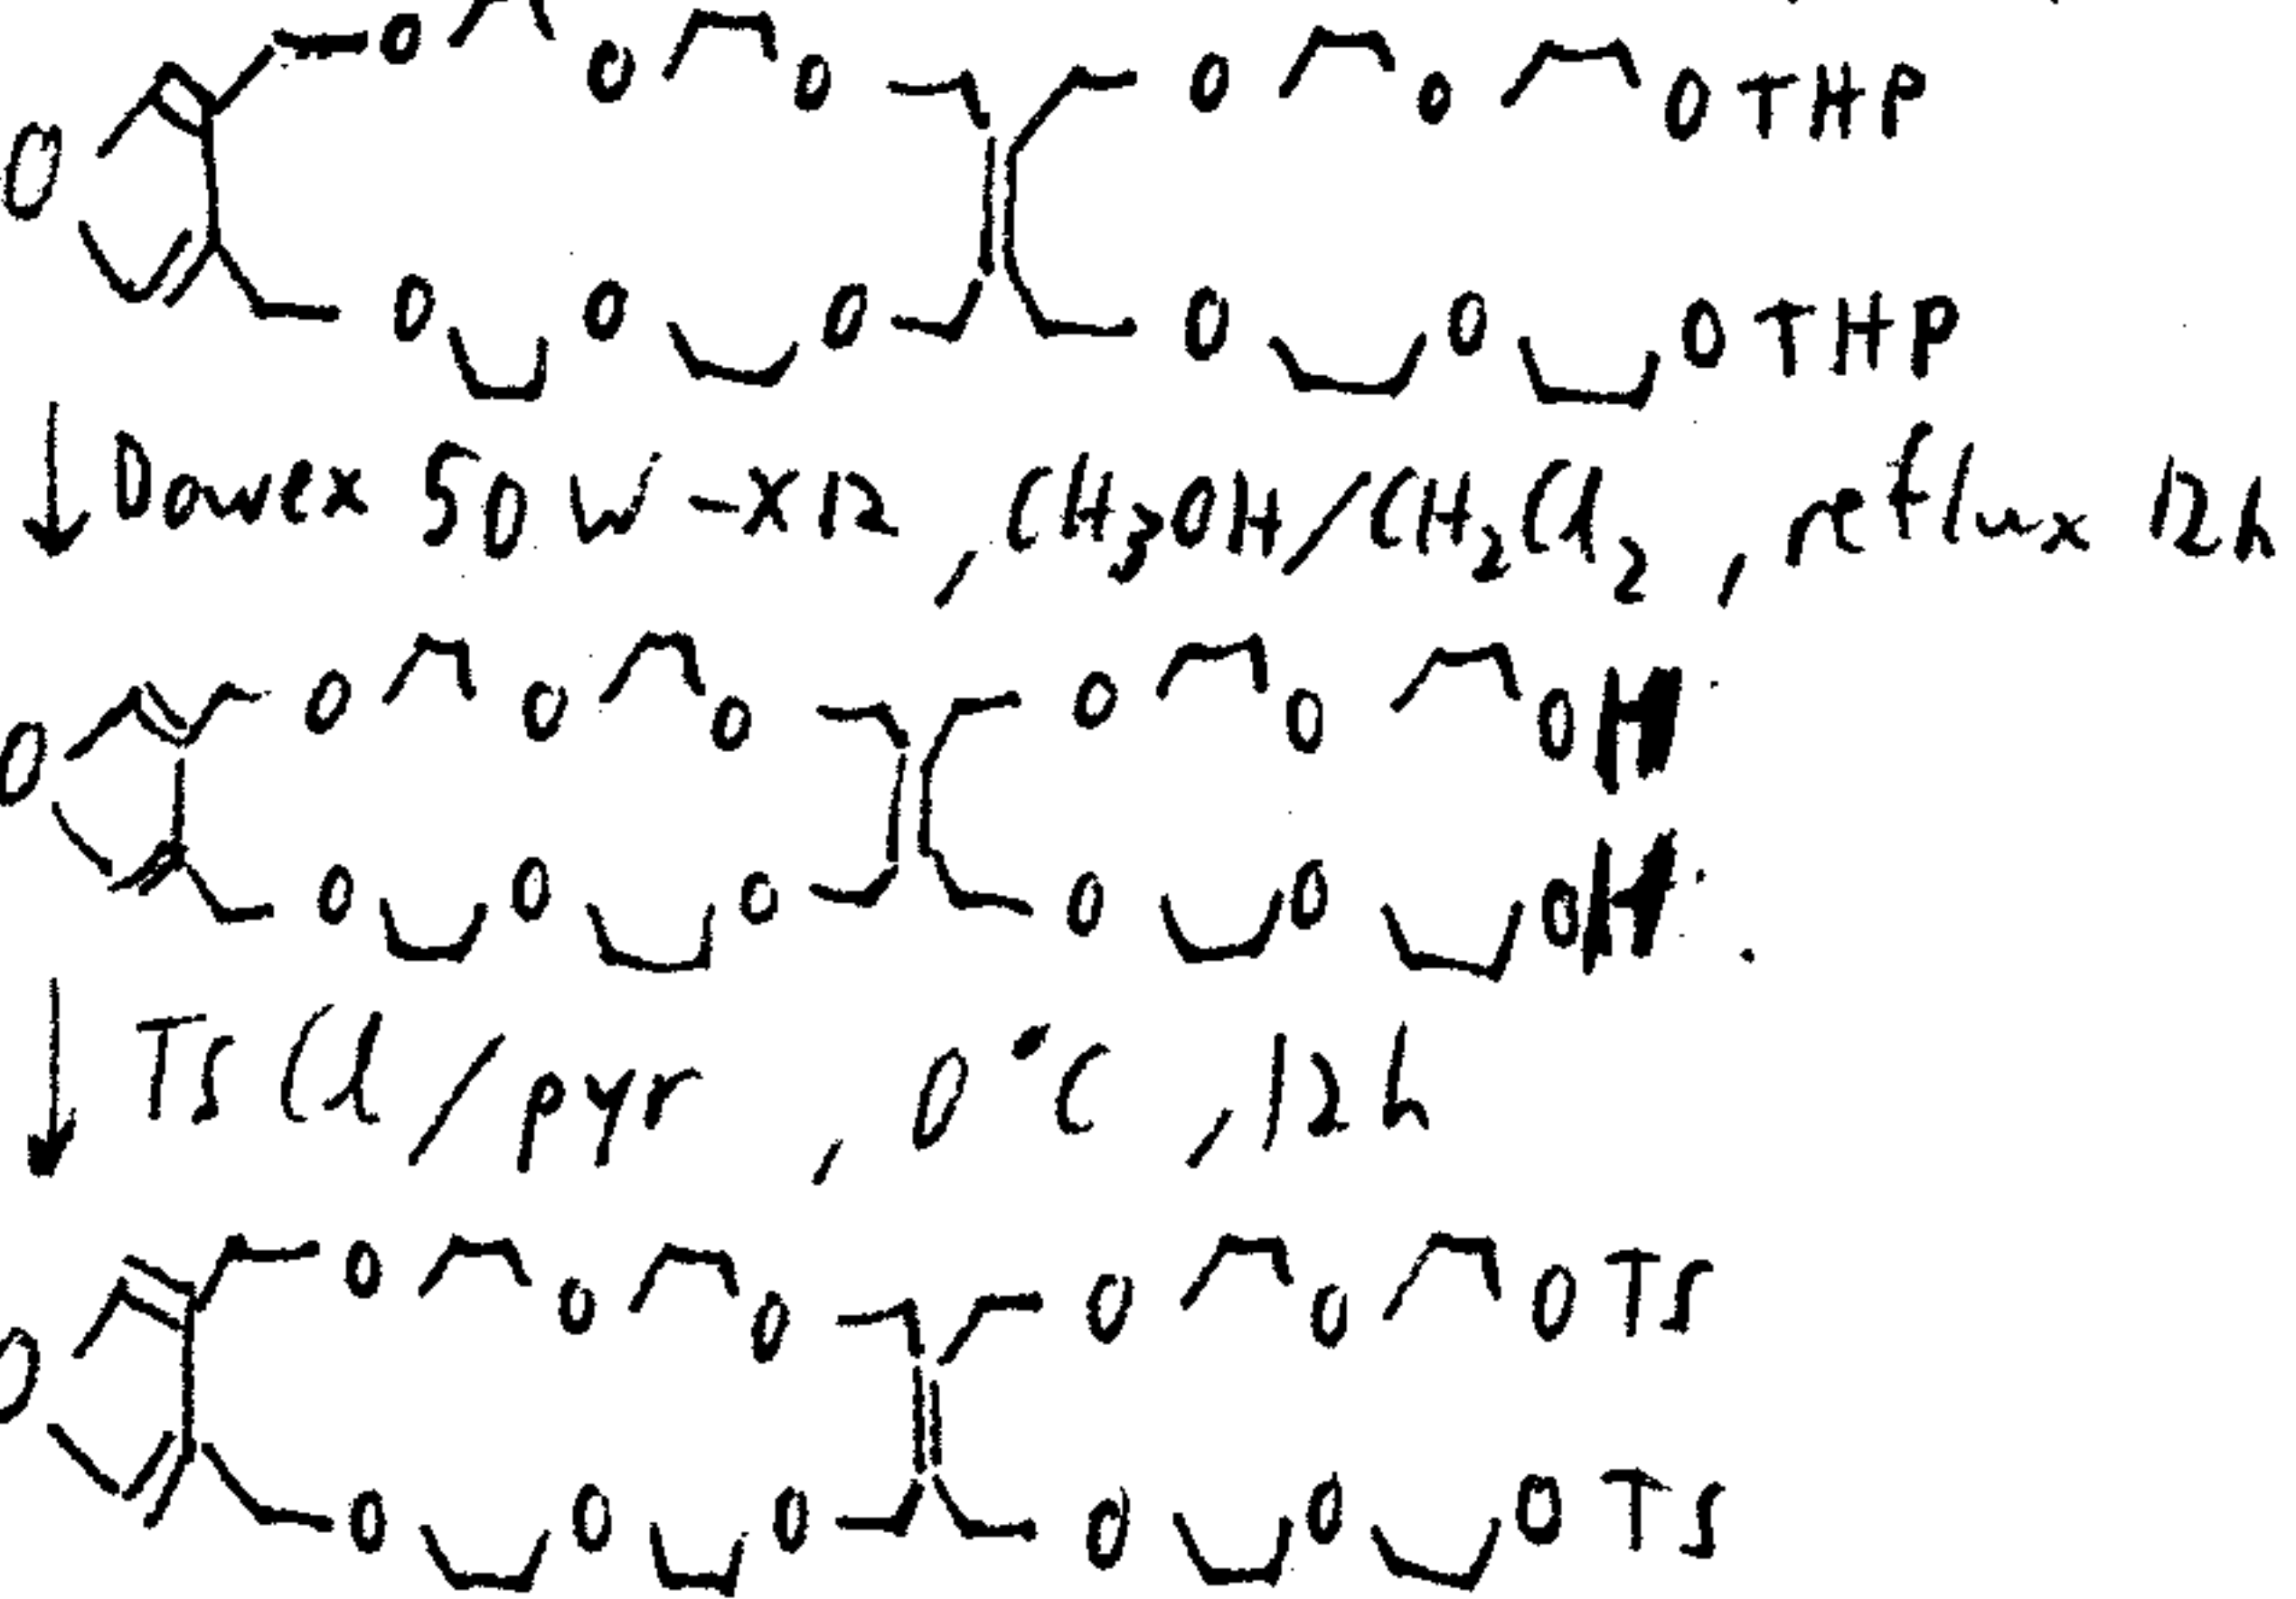 O O O O O OTHP
O
O O O O O OTHP
↓ Dowex 50W-X12, CH3OH/CH2Cl2, reflux 12h
O O O O O OH
O
O O O O O OH
↓ TsCl/pyr, 0°C, 12h
O O O O O OTS
O
O O O O O OTS